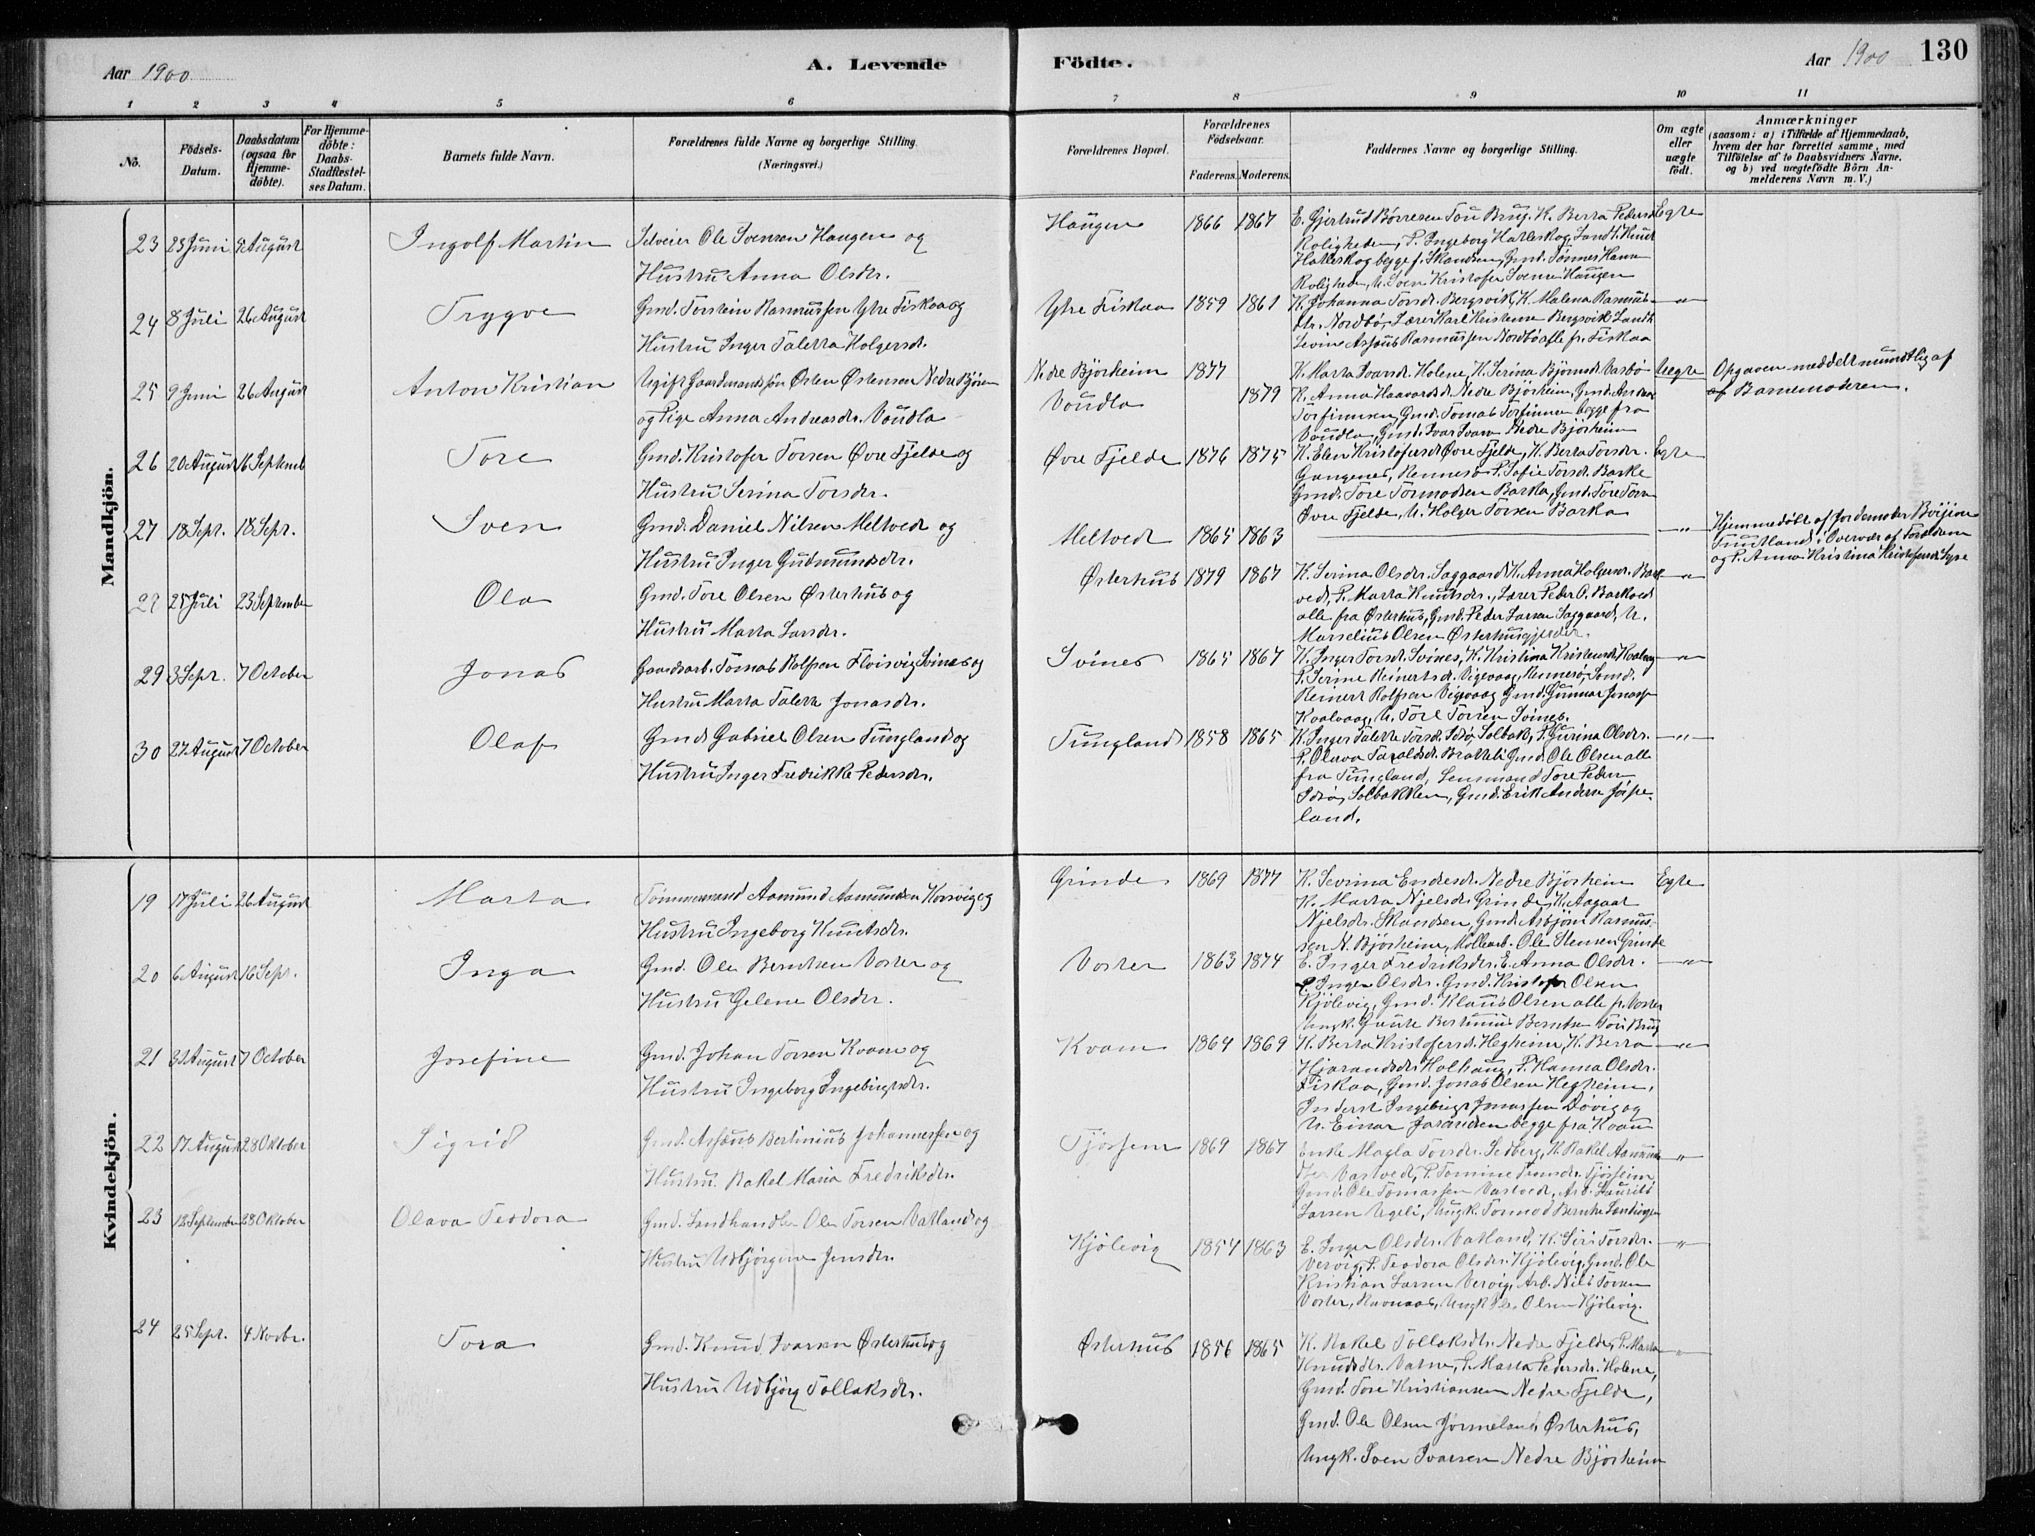 Aar 1900
A. Levende
Födte.
Aar 1900
130
1 2 3 4 5 6 7 8 9 10 11
No.
Födsels-Datum.
Daabsdatum (ogsaa for Hjemmedöbte).
For Hjemmedöbte: Daabs-Stadfæstelses Datum.
Barnets fulde Navn.
Forældrenes fulde Navne og borgerlige Stilling. (Næringsvei.)
Forældrenes Bopæl.
Forældrenes Födselsaar.
Faderens. Moderens.
Faddernes Navne og borgerlige Stilling.
Om ægte eller uægte födt.
Anmærkninger
(saasom: a) i Tilfælde af Hjemmedaab,
hvem der har forrettet samme, med
Tilföielse af to Daabsvidners Navne,
og b) ved uægtefödte Börn Anmelderens Navn m. V.)
Mandkjön.
23 23 Juni 5 August Ingolf Martin Selveier Ole Svensen Haugen og
Hustru Anna Olsdr.
Haugen 1866 1867 E. Gjertrud Børresen Tou Brug, K. Berta Peders Egte
Roligheden, P. Ingeborg Hatleskog, Landh. Knut
Hatleskog begge f. Skandsen, Gmd. Tönnes Hann
Roligheden, U. Sven Kristofer Svensen Haugen
24 8 Juli 26 August Trygve Gmd. Torstein Rasmussen Ytre Fiskaa og
Hustru Inger Taletta Holgersdr.
Ytre Fiskaa 1859 1861 K. Johanna Torsdr. Bergsvik, K. Malena Rasmus- —"—
dtr. Nordbø, Lærer Karl Kristense Bergsvik, Landh.
Levine Asseus Rasmussen Nordbø alle fr. Fiskaa
25 9 Juni 26 August Anton Kristian Ugift Gaardmandssøn Østen Østensen Nedre Bjørheim
og Pige Anna Andreasdr. Voudla
Nedre Björheim 1877
Voudla 1879
K. Marta Ivarsdr. Holene, K. Serina Bjørnsdr. Vasbø- Uegte
K. Anna Haavardsd. Nedre Björheim, Gmd. Andreas
Torfinnsen, Gmd. Tomas Torfinnsen begge fra
Voudla, Gmd. Ivar Ivarsen Nedre Björheim
Opgaven meddelt mundtlig af
af Barnemoderen.
26 20 August 16 Septemb Tore Gmd. Kristofer Torsen Øvre Fjelde og
Hustru Serina Torsdr.
Øvre Fjelde 1876 1875 K. Elen Kristofersdr. Øvre Fjelde, K. Berta Torsdr. Egte
Gangenes, Rennesø, P. Sofie Torsdr. Barke
Gmd. Tore Tormodsen Barka, Gmd. Tore Torsen
Øvre Fjelde, U. Holger Torsen Barka
27 18 Sept. 18 Sept. Sven Gmd. Daniel Nilsen Meltvedt og
Hustru Inger Gudmundsdr.
Meltvedt 1865 1863 —"—
Hjemmedøbt af Jordemoder
Tuntland i Overvær af Forældrene
og P. Anna Kristina Kristofersd. Lyse
29 25 Juli 23 September Ola Gmd. Tore Olsen Østerhus og
Hustru Marta Larsdr.
Østerhus 1879 1867 K. Serina Olsdr. Saggaard, K. Anna Holgersdr. Bark- —"—
ved, P. Marta Knutsdr., Lærer Peder P. Barkved
alle fra Østerhus, Gmd. Peder Larsen Saggaard, U.
Marselius Olsen Østerhusgjerder.
29 3 Sept. 7 October Jonas Gaardarb. Tomas Rolfsen Floisvig Svines og
Hustru Marta Taletta Jonasdr.
Svines 1865 1867 K. Inger Torsdr. Svines, K. Kristina Kristensdr. Kvalvaag —"—
P. Serine Reinertsdr. Vigevaag, Rennesø, Somd.
Reinert Rolfsen Vigevaag Gmd. Gunnar Jonassen
Kvalvaag, U. Tore Torsen Svines.
30 22 August 7 October Olaf Gmd. Gabriel Olsen Tungland og
Hustru Inger Fredrikke Pedersdr.
Tungland 1858 1865 K. Inger Taletta Torsdr. Idsø, Solbak, P. Gurina Olsdr. —"—
P. Olava Taraldsdr. Brattli, Gmd. Ole Olsen alle
fra Tungland, Lensmand Tore Peder
Idsø, Solbakken, Gmd. Erik Andersen Jøspe-
land.
Kvindekjön.
19 17 Juli 26 August Marta Tømmermand Aamund Aamundsen Korsvig og
Hustru Ingeborg Knutsdr.
Grinde 1869 1877 K. Severina Endresdr. Nedre Björheim Egte
K. Marta Njelsdr. Grinde, K. Aagaat
Njelsdr. Skandsen, Gmd. Asbjörn Rasmus-
sen N. Björheim, Møllearb. Ole Stensen Grinde
20 6 August 16 Sept. Inga Gmd. Ole Berntsen Voster og
Hustru Gelene Olsdr.
Voster 1863 1874 E. Inger Fredriksdr. E. Anna Olsdr. —"—
P. Inger Olsdr. Gmd. Kristofer Olsen
Kjölevig, Gmd. Klaus Olsen alle fr. Voster
Ungk. Gaute Bertinius Berntsen Tou Brug
21 31 August 7 October Josefine Gmd. Johan Torsen Kvam og
Hustru Ingeborg Ingebrigtsdr.
Kvam 1864 1869 K. Berta Kristofersd. Hegheim, K. Berta —"—
Hjorandsdr. Holhaug, P. Hanna Olsdr.
Fiskaa, Gmd. Jonas Olsen Hegheim,
Inderst Ingebrigt Jonassen Døvig og
U. Einar Jorandsen begge fra Kvam
22 17 August 28 Oktober Sigrid Gmd. Asseus Bertinius Johannessen og
Hustru Rakel Maria Fredriksdr.
Tjössem 1869 1867 Enke Marta Torsdr. Sedberg, K. Rakel Aamunds- —"—
dtr Vastvedt, P. Tomine Tomsdr. Tjøssem
Gmd. Ole Tomassen Vastvedt, Arb. Lauritz
Larsen Ugeli, Ungk. Tormod Berntsen
23 12 September 28 Oktober Olava Teodora Gmd. Landhandler Ole Torsen Vatland og
Hustru Udbjørgine Jensdr.
Kjölevig 1854 1863 E. Inger Olsdr. Vatland, K. Siri Torsdr. —"—
Vervig, P. Teodora Olsdr. Kjölevig, Gmd. Ole
Kristian Larsen Vervig, Arb. Nils Torsen
Voster, Ravnaas, Ungk. Ole Olsen Kjölevig.
24 25 Sept. 4 Novbr. Tora Gmd. Knud Ivarsen Østerhus og
Hustru Udbjørg Tollaksdr.
Østerhus 1856 1865 K. Rakel Tollaksdtr. Nedre Fjelde, P. Marta —"—
Knudsdtr. Vatne, P. Marta Pedersdr. Holene,
Gmd. Tore Kristiansen Nedre Fjelde,
Gmd. Ole Olsen Jørmeland, Østerhus,
Ungk. Sven Ivarsen Nedre Björheim